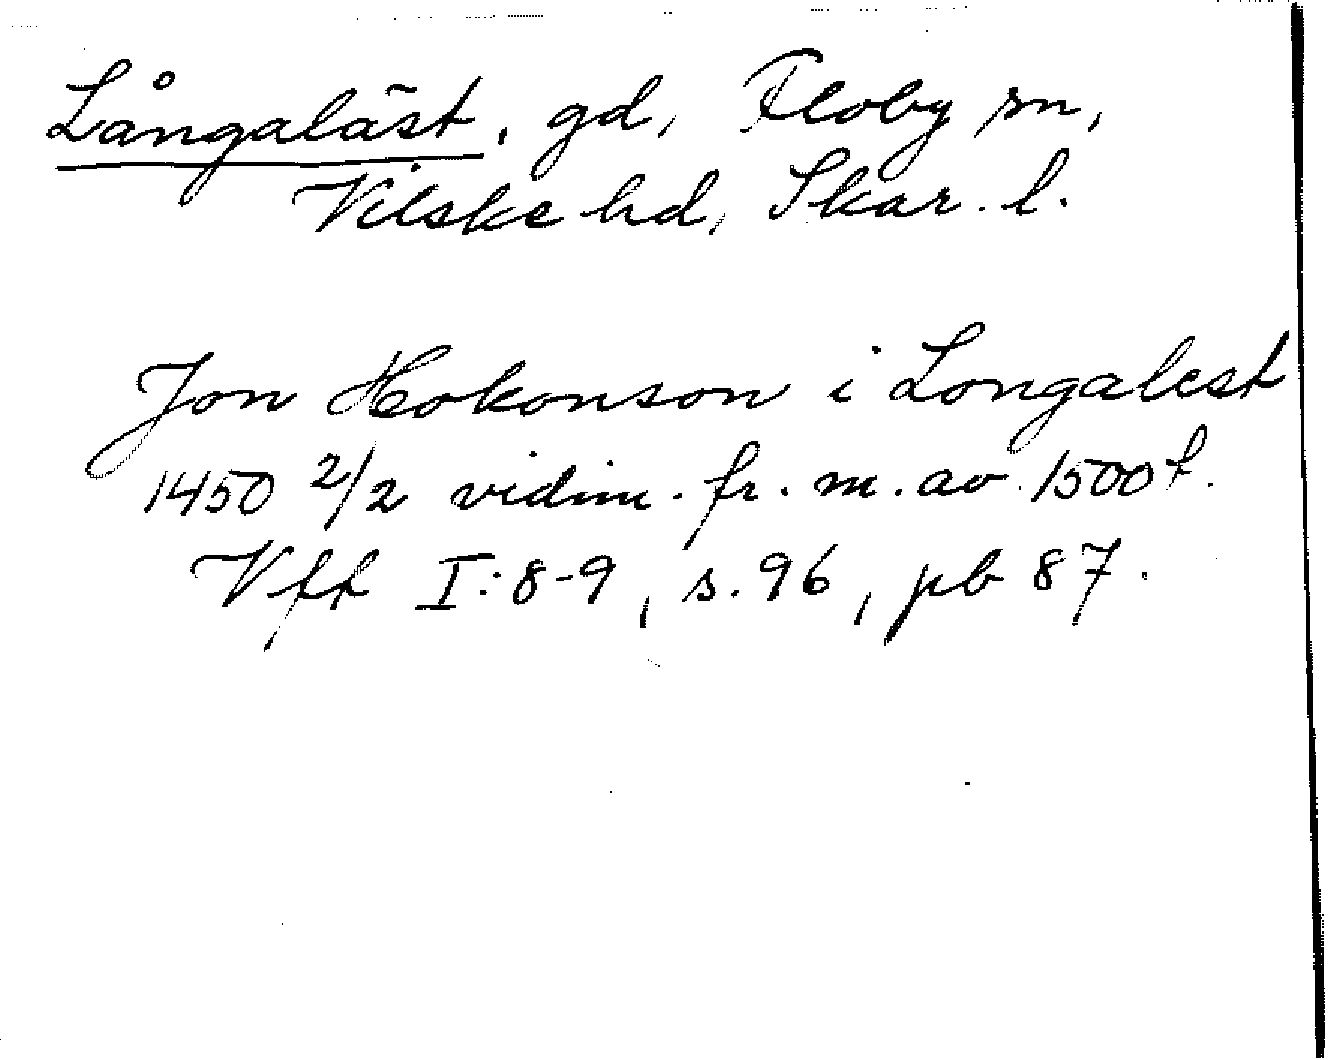 Långaläst, gd, Floby sn,
Vilske hd, Skar. l.
Jon Hokonson i Longalest
1450 2/2 vidim. fr. m. av 1500 t.
Vff I: 8-9, s. 96, pb 87.